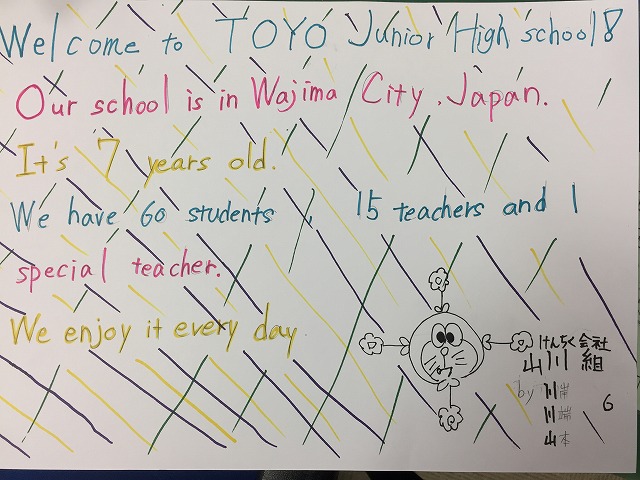 Welcome to TOYO Junior High school!
Our school is in Wajima City, Japan.
It's 7 years old.
We have 60 students, 15 teachers and 1
special teacher.
We enjoy it every day.
けんちく会社
山川組
by 川岸
川端
山本
6